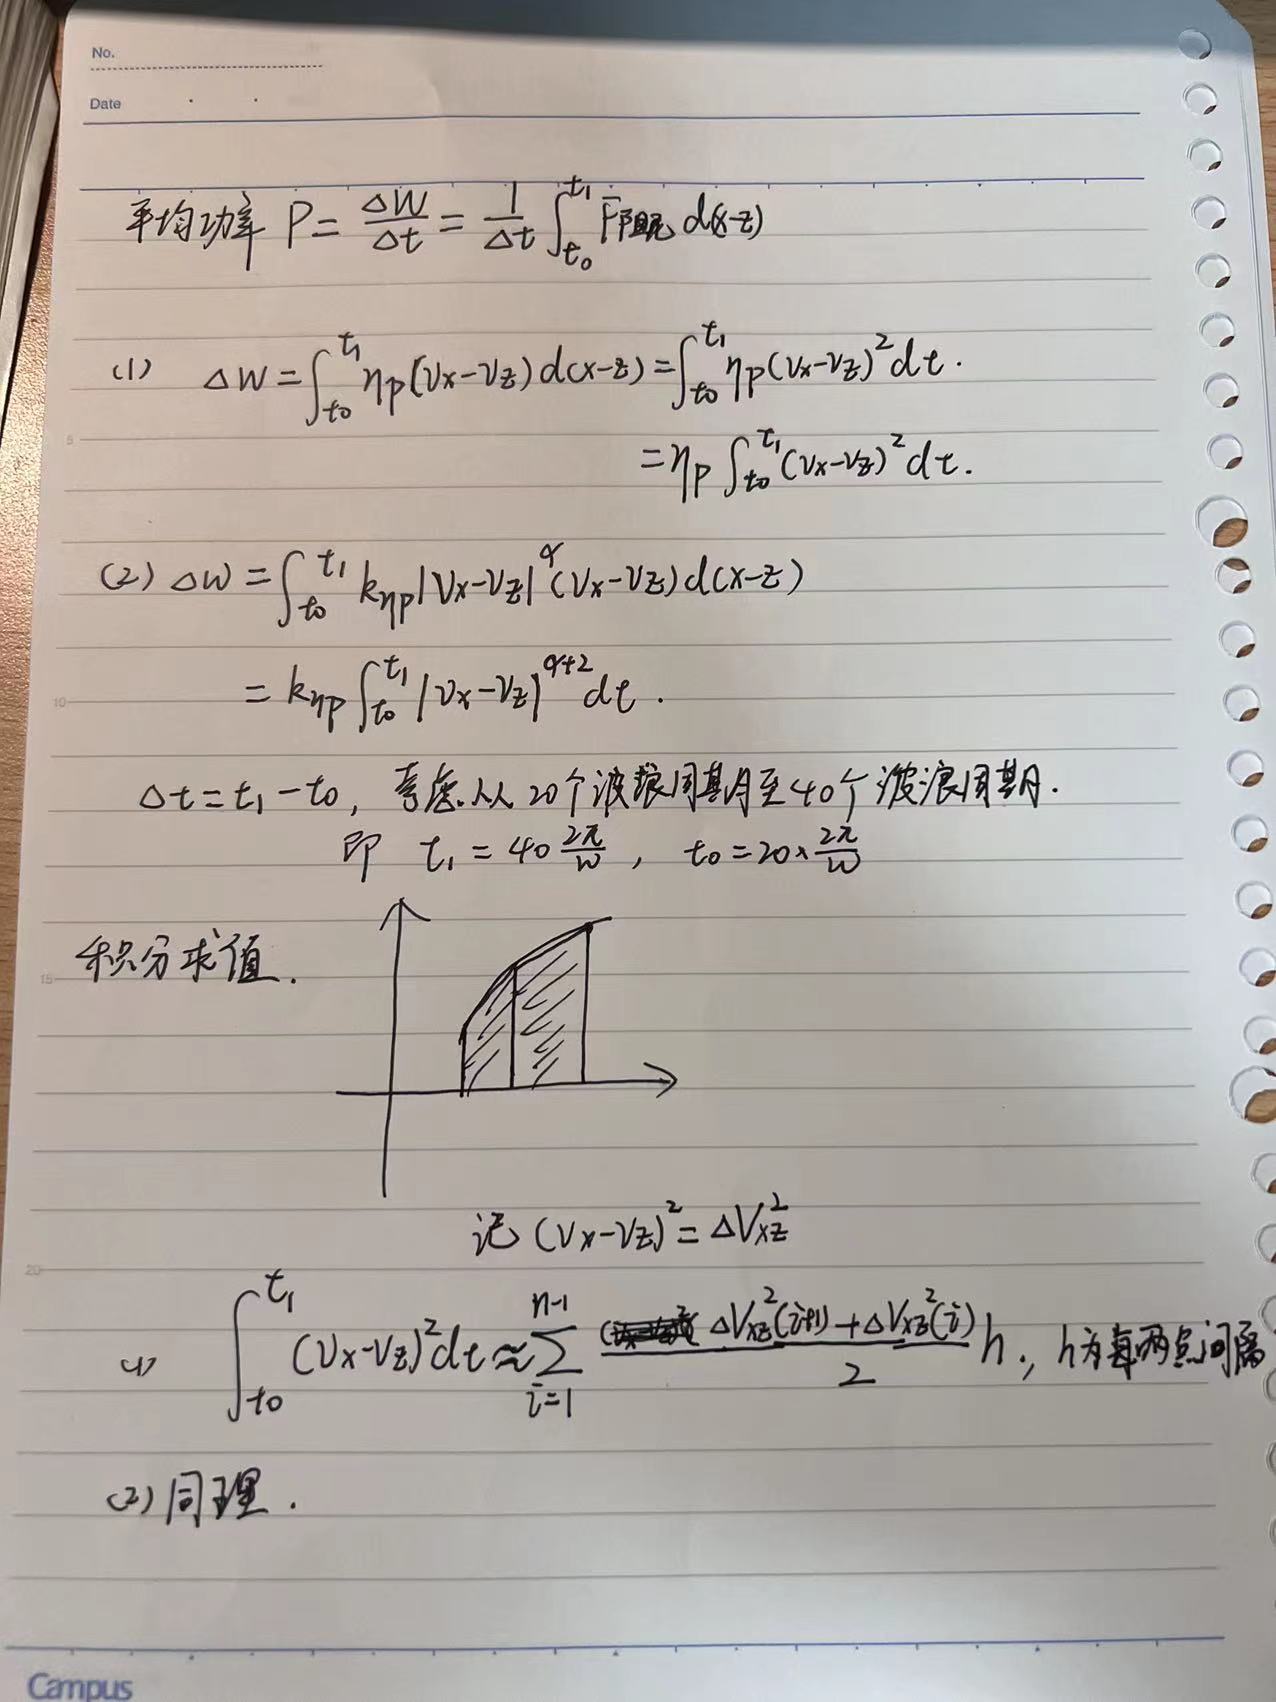 No.
Date
平均功率 P = ΔW/Δt = 1/Δt ∫_{t₀}^{t₁} F阻尼 d(x-z)
(1) ΔW = ∫_{t₀}^{t₁} ηp(Vx-Vz) d(x-z) = ∫_{t₀}^{t₁} ηp(Vx-Vz)² dt.
= ηp ∫_{t₀}^{t₁} (Vx-Vz)² dt.
5
(2) ΔW = ∫_{t₀}^{t₁} kηp|Vx-Vz|^α (Vx-Vz) d(x-z)
= kηp ∫_{t₀}^{t₁} |Vx-Vz|^{α+2} dt.
10
Δt = t₁-t₀, 考虑从20个波浪周期至40个波浪周期.
即 t₁ = 40 2π/w, t₀ = 20×2π/w
积分求值.
15
记 (Vx-Vz)² = ΔVxz²
20
(1) ∫_{t₀}^{t₁} (Vx-Vz)² dt ≈ Σ_{i=1}^{n-1} (ΔVxz²(i+1) + ΔVxz²(i))/2 h., h为每两点间隔
(2) 同理.
Campus